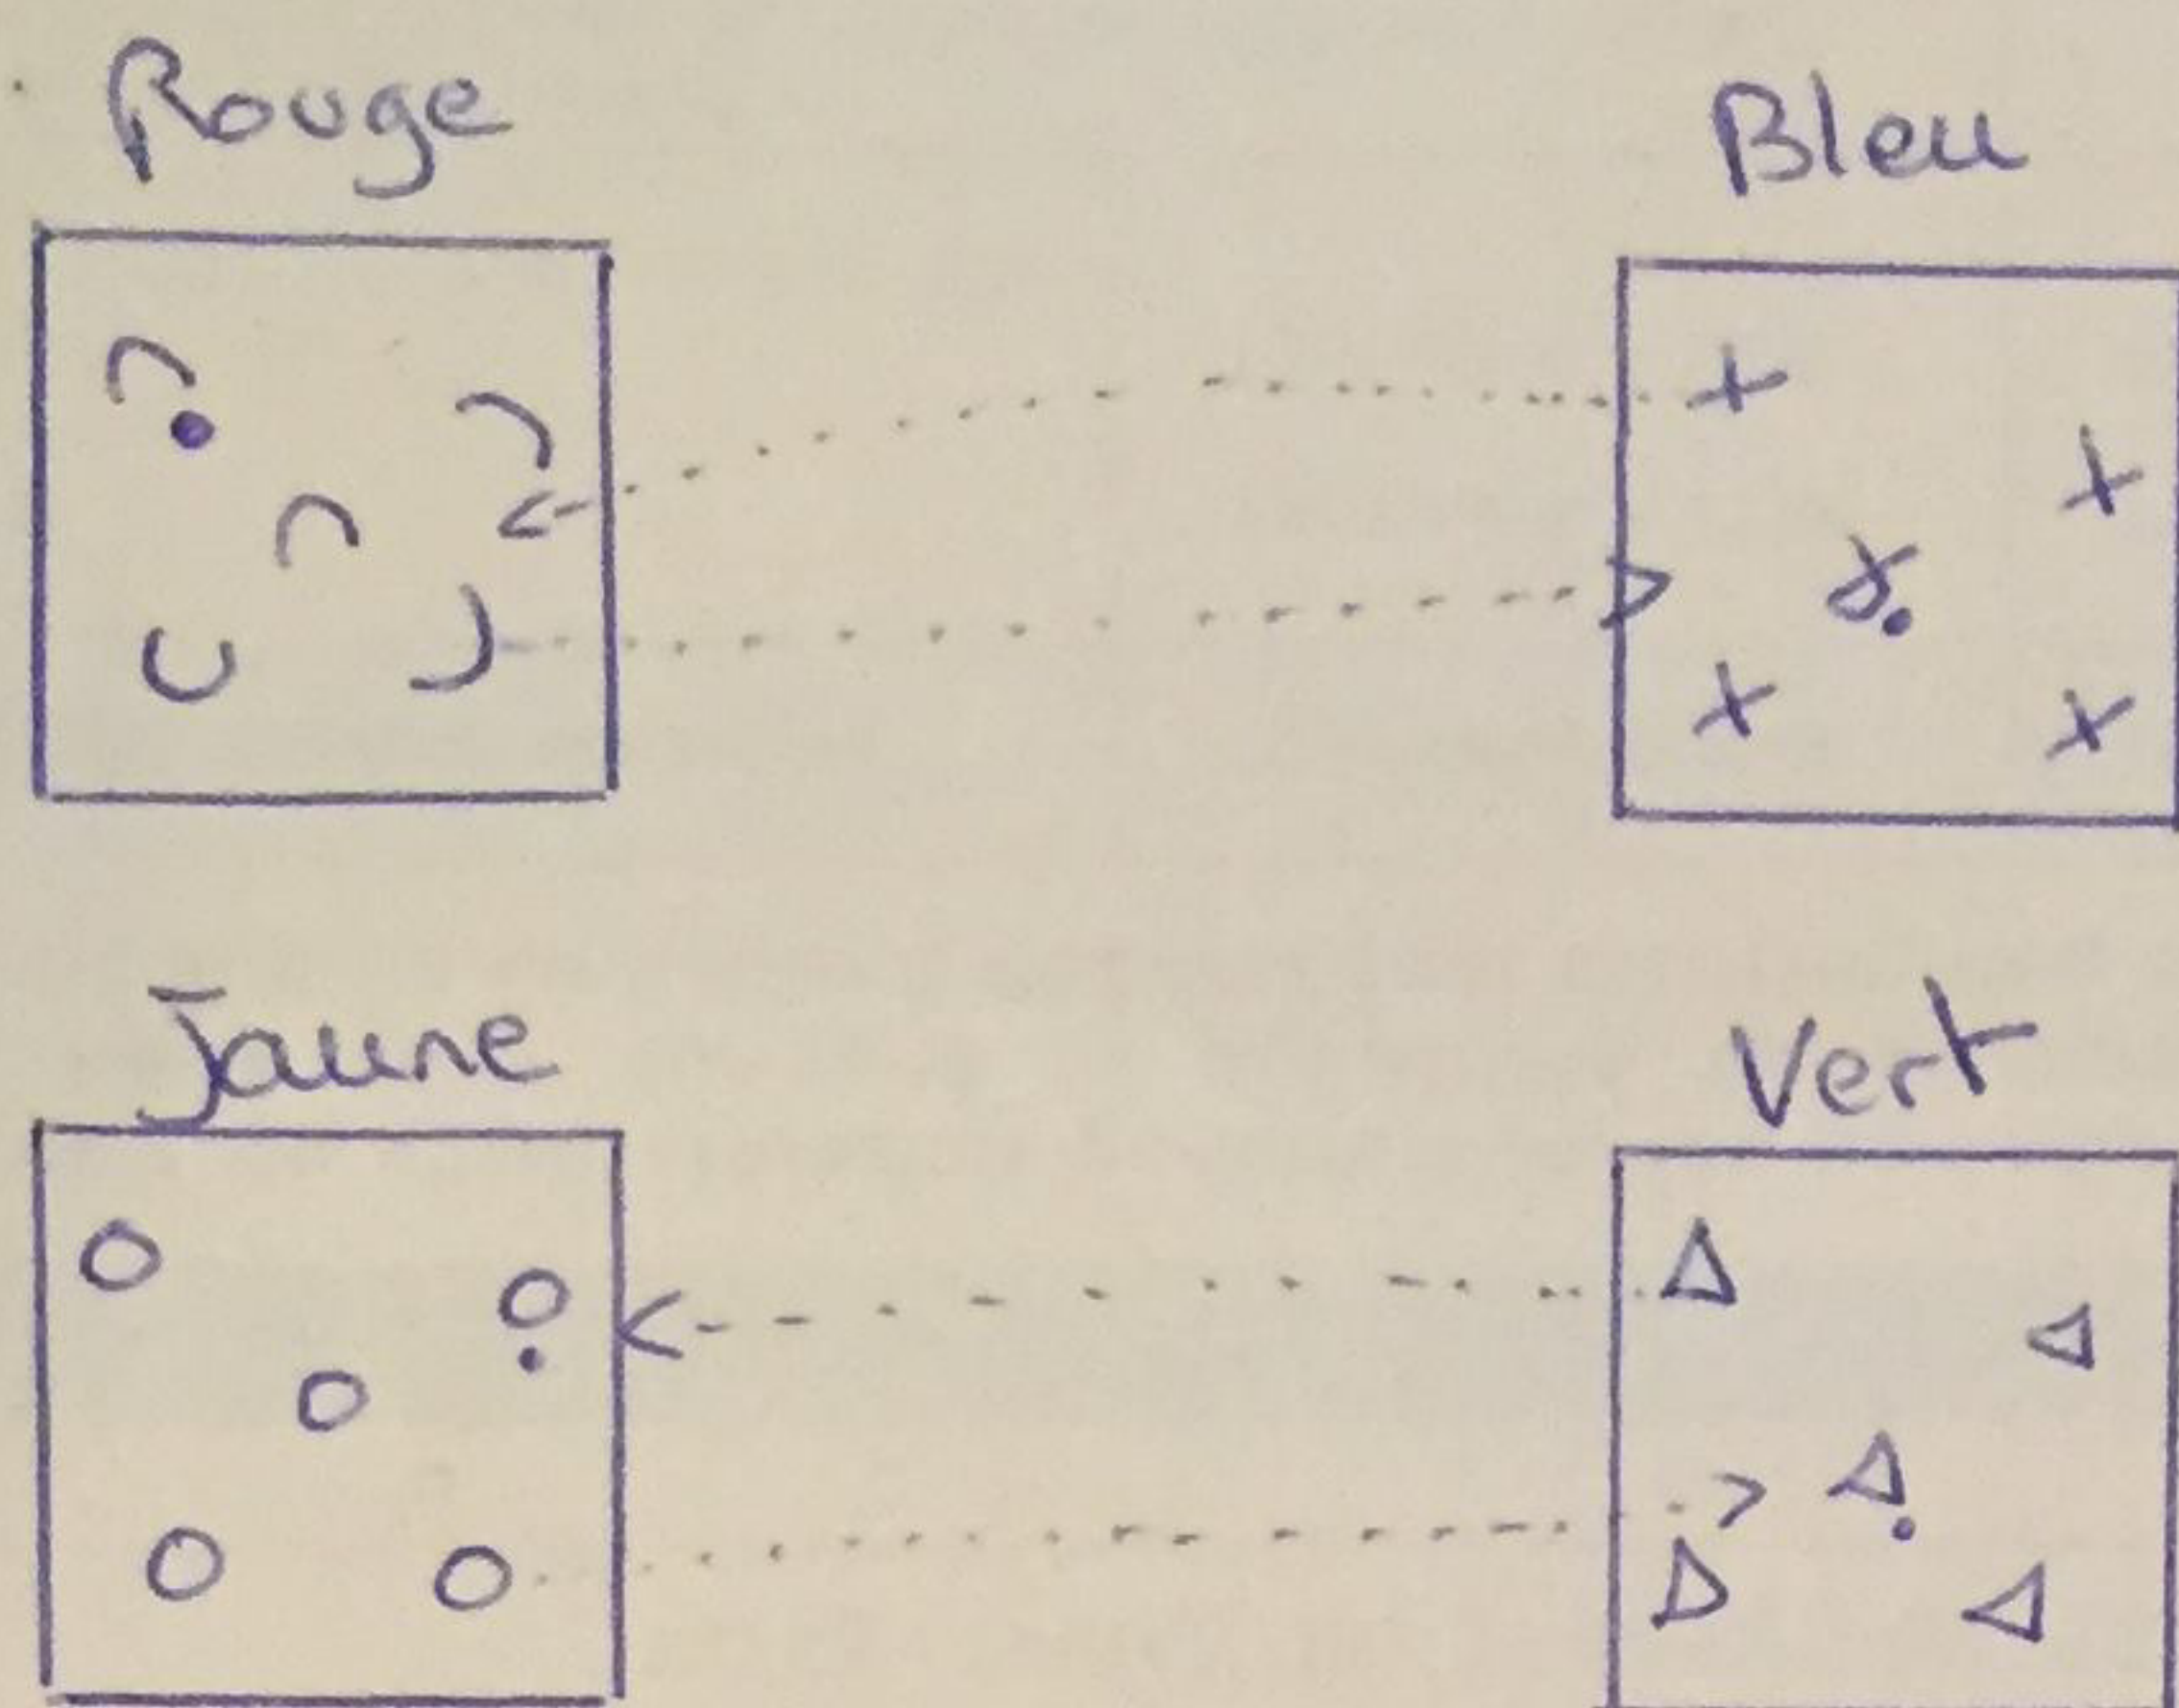 Rouge
Bleu
Jaune
Vert